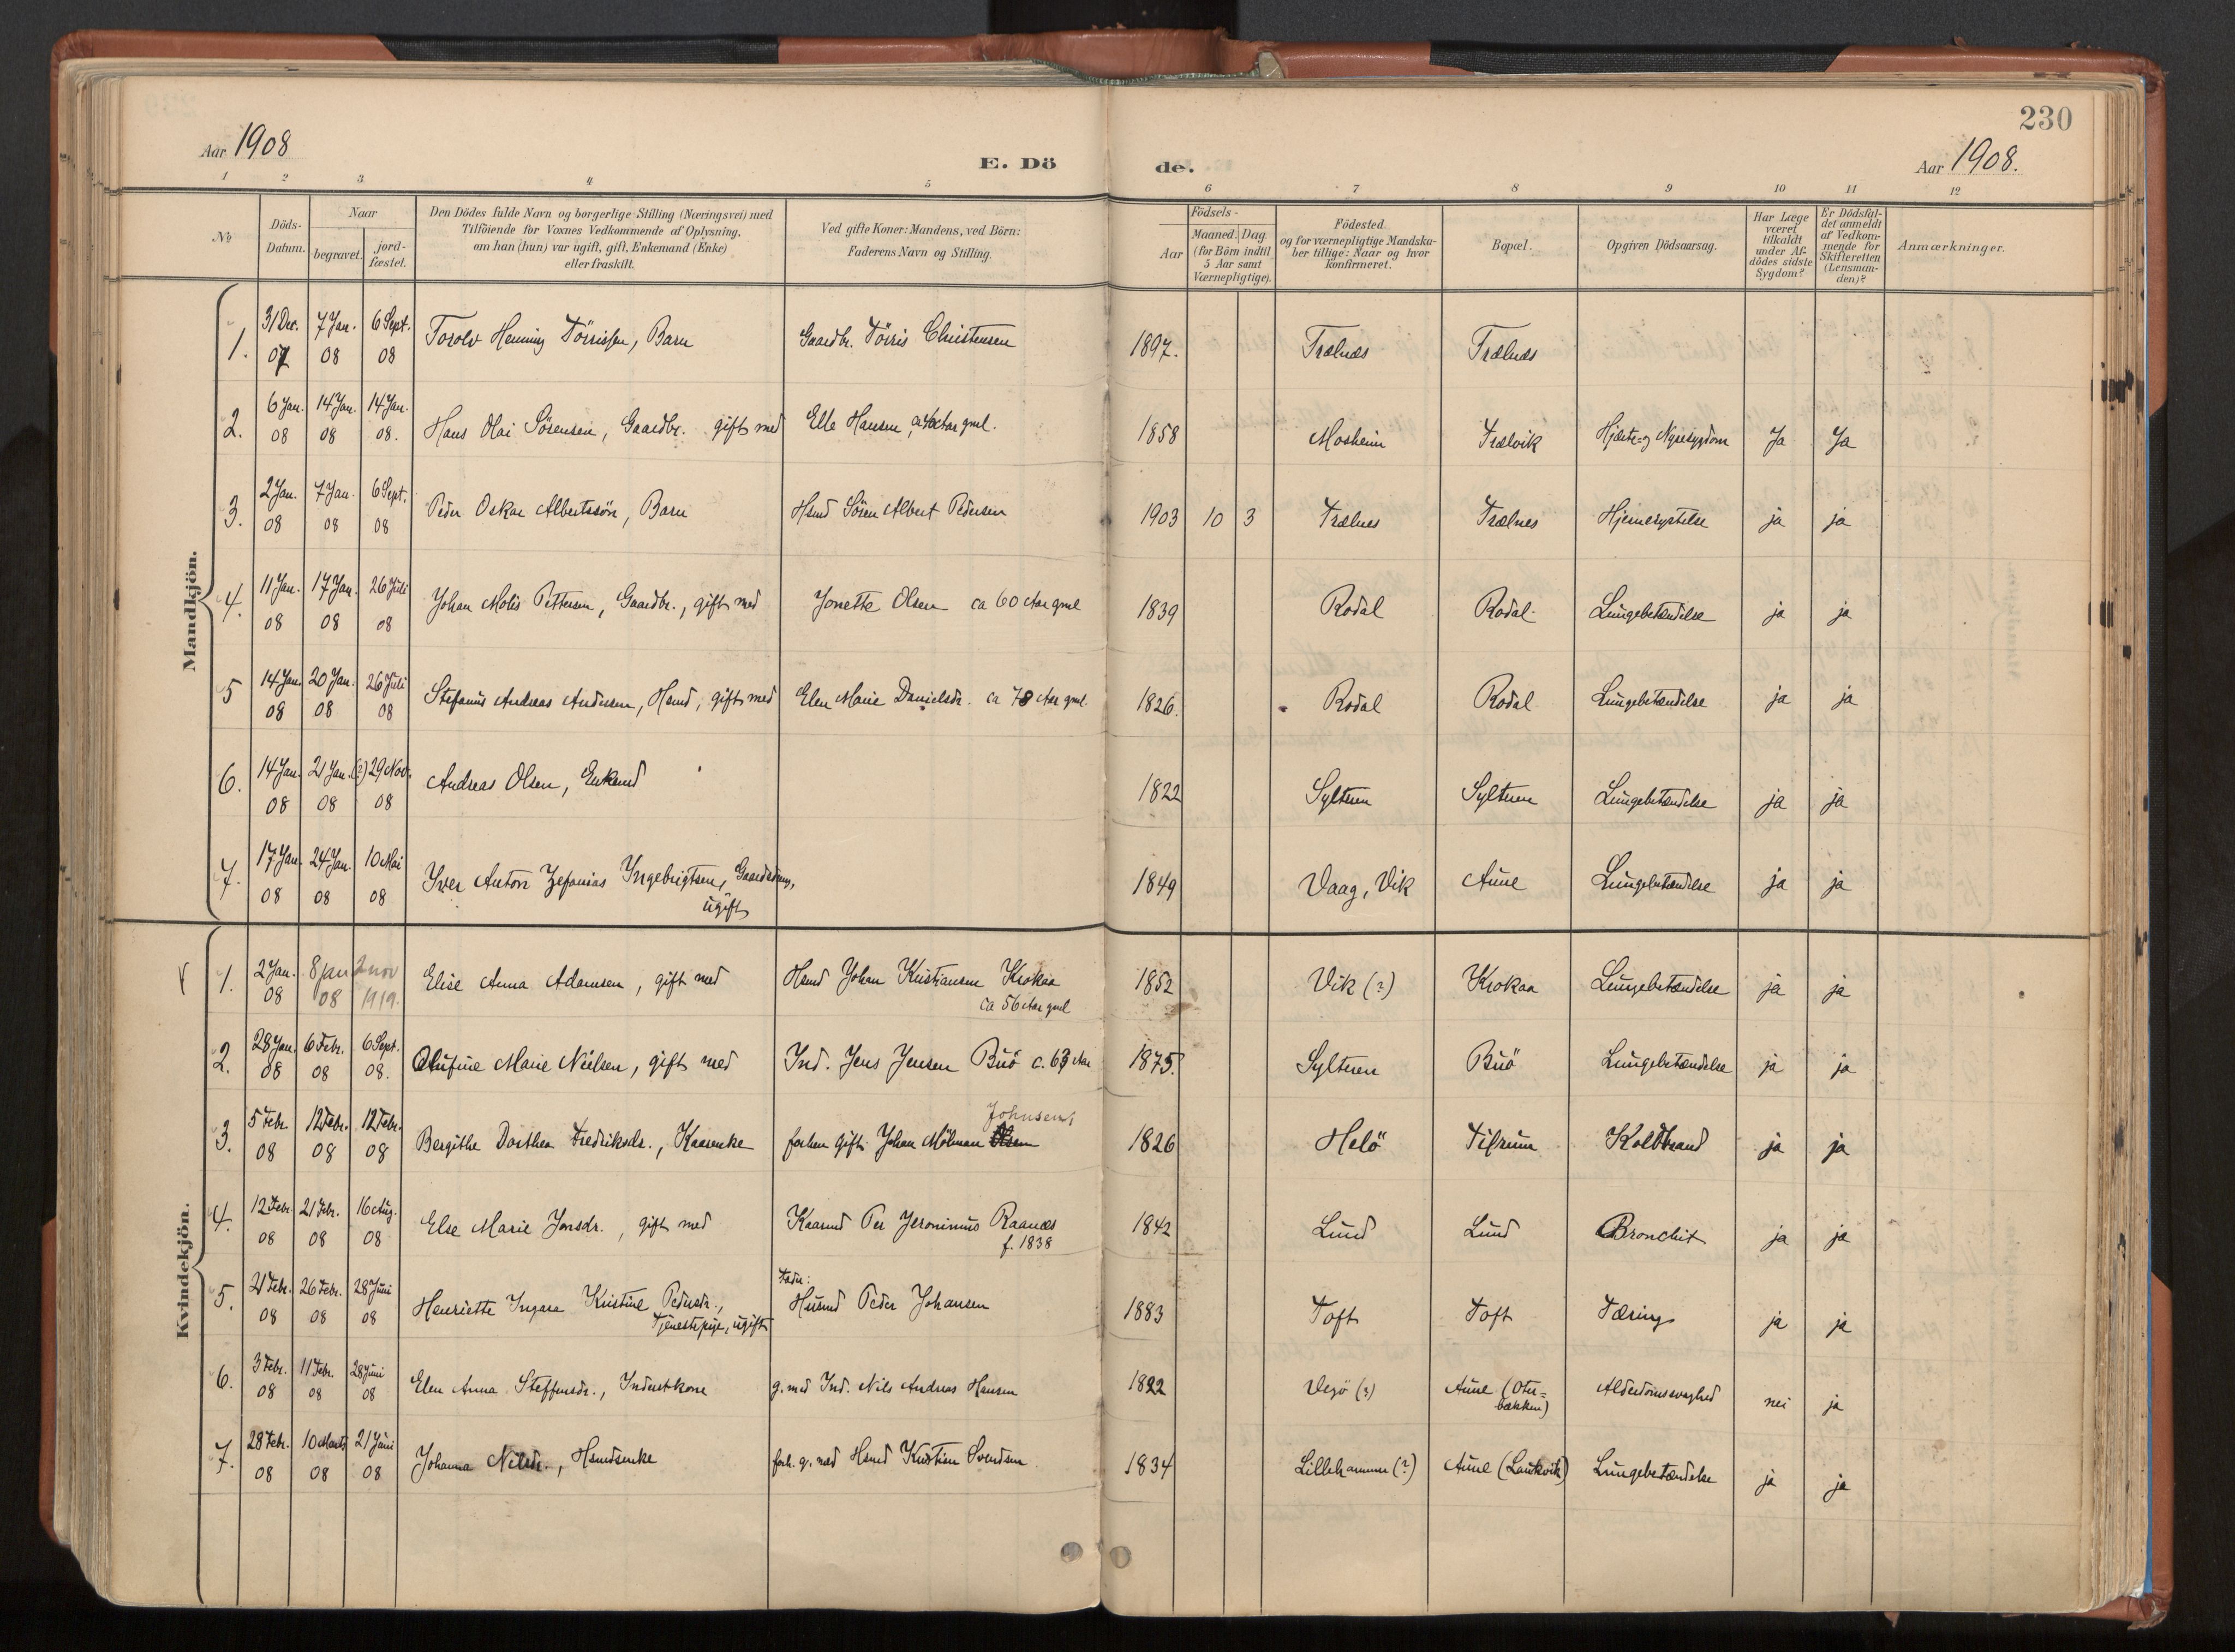 230
Aar 1908
E. Döde.
Aar 1908.
1 2 3 4 5 6 7 8 9 10 11 12
No
Döds-Datum.
Naar
begravet.
jord-fæstet.
Den Dödes fulde Navn og borgerlige Stilling (Næringsvei) med
Tilföiende for Voxnes Vedkommende af Oplysning,
om han (hun) var ugift, gift, Enkemand (Enke)
eller fraskilt.
Ved gifte Koner: Mandens, ved Börn:
Faderens Navn og Stilling.
Födsels-
Aar
Maaned. Dag
(for Börn indtil
5 Aar samt
Værnepligtige).
Födested.
og for værnepligtige Mandska-
ber tillige: Naar og hvor
konfirmeret.
Bopæl.
Opgiven Dödsaarsag.
Har Læge
været
tilkaldt
under Af-
dödes sidste
Sygdom?
Er Dödsfal-
det anmeldt
af Vedkom-
mende for
Skifteretten
(Lensman-
den)?
Anmærkninger.
Mandkjön.
1. 31 Dec. 07 7 Jan. 08 6 Sept. 08 Torolv Henning Törrissen, Barn Gaardbr. Törris Christensen 1897. Trælnæs Trælnæs
2. 6 Jan. 08 14 Jan. 08 14 Jan. 08. Hans Olai Sörensen, Gaardbr. gift med Elle Hansen, Aar gml. 1858 Mosheim Trælvik Hjerte- og Nyresygdom Ja Ja
3. 2 Jan. 08 7 Jan. 08 6 Sept. 08 Peder Oskar Albertssön, Barn Hsmd Sören Albert Pedersen 1903 10 3 Trælnes Trælnes Hjernerystelse ja ja
4. 11 Jan. 08 17 Jan. 08 26 Juli 08 Johan Molis Pettersen, Gaardbr., gift med Jonette Olsen ca 60 Aar gml 1839 Rodal Rodal Lungebetændelse ja ja
5 14 Jan. 08 20 Jan. 08 26 Juli 08 Stefanus Andreas Andersen, Hsmd, gift med Elen Marie Danielsdr. ca 78 Aar gml. 1826. Rodal Rodal Lungebetændelse ja ja
6. 14 Jan. 08 21 Jan. 08 (?) 29 Nov. 08 Andreas Olsen, Enkemd 1822 Sylteren Sylteren Lungebetændelse ja ja
7. 17 Jan. 08 24 Jan. 08 10 Mai 08 Iver Anton Zefanias Ingebrigtsen, ugift 1849 Vaag, Vik Aune Lungebetændelse ja ja
Kvindekjön.
1. 2 Jan. 08 8 jan 08 2 nov 1919. Elise Anna Adamsen, gift med Hsmd Johan Kristiansen Krokaa
ca 56 Aar gml 1852 Vik (?) Krokaa Lungebetændelse ja ja
2. 28 Jan. 08 6 Febr. 08 6 Sept. 08. Olufine Marie Nielsen, gift med Ind. Jens Jensen Buö c. 63 Aar 1875. Sylteren Buö Lungebetændelse ja ja
3. 5 Febr. 08 12 Febr. 08 12 Febr. 08 Bergithe Dorthea Fredriksdr., Kaarenke forhen gift Johan Mölman Olsen Johnsen 1826 Helö Tilrum Koldbrand ja ja
4. 12 Febr. 08 21 Febr. 08 16 Aug. 08 Else Marie Jonsdr., gift med Kaarmd Per Jeronimus Raanæs
f. 1838 1842 Lund Lund Bronchit ja ja
5. 21 Febr. 08 26 Febr. 08 28 Juni 08 Henriette Ingara Kristine Pedersdr.,
Tjenestepige, ugift Fader:
Husmd Peder Johansen 1883 Toft Toft Tæring ja ja
6. 3 Febr. 08 11 Febr. 08 28 Juni 08 Elen Anna Steffensdr., Inderstkone g. med Ind. Nils Andreas Hansen 1822 Vegö (?) Aune (Oter-
bækken) Alderdomssvaghed nei ja
7. 28 Febr. 08 10 Marts 08 21 Juni 08 Johanna Nilsdr., Hsmdsenke forh. g. med Hsmd Kristian Svendsen 1834 Lillehammer (?) Aune (Laukvik) Lungebetændelse ja ja